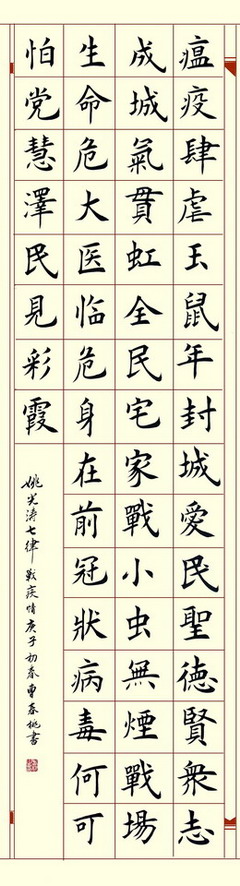 瘟疫肆虐玉鼠年封城愛民聖徳賢衆志
成城氣貫虹全民宅家戰小虫無煙戰場
生命危大医临危身在前冠狀病毒何可
怕党慧澤民見彩霞
姚光涛七律戰疫情庚子初春曹春桃書